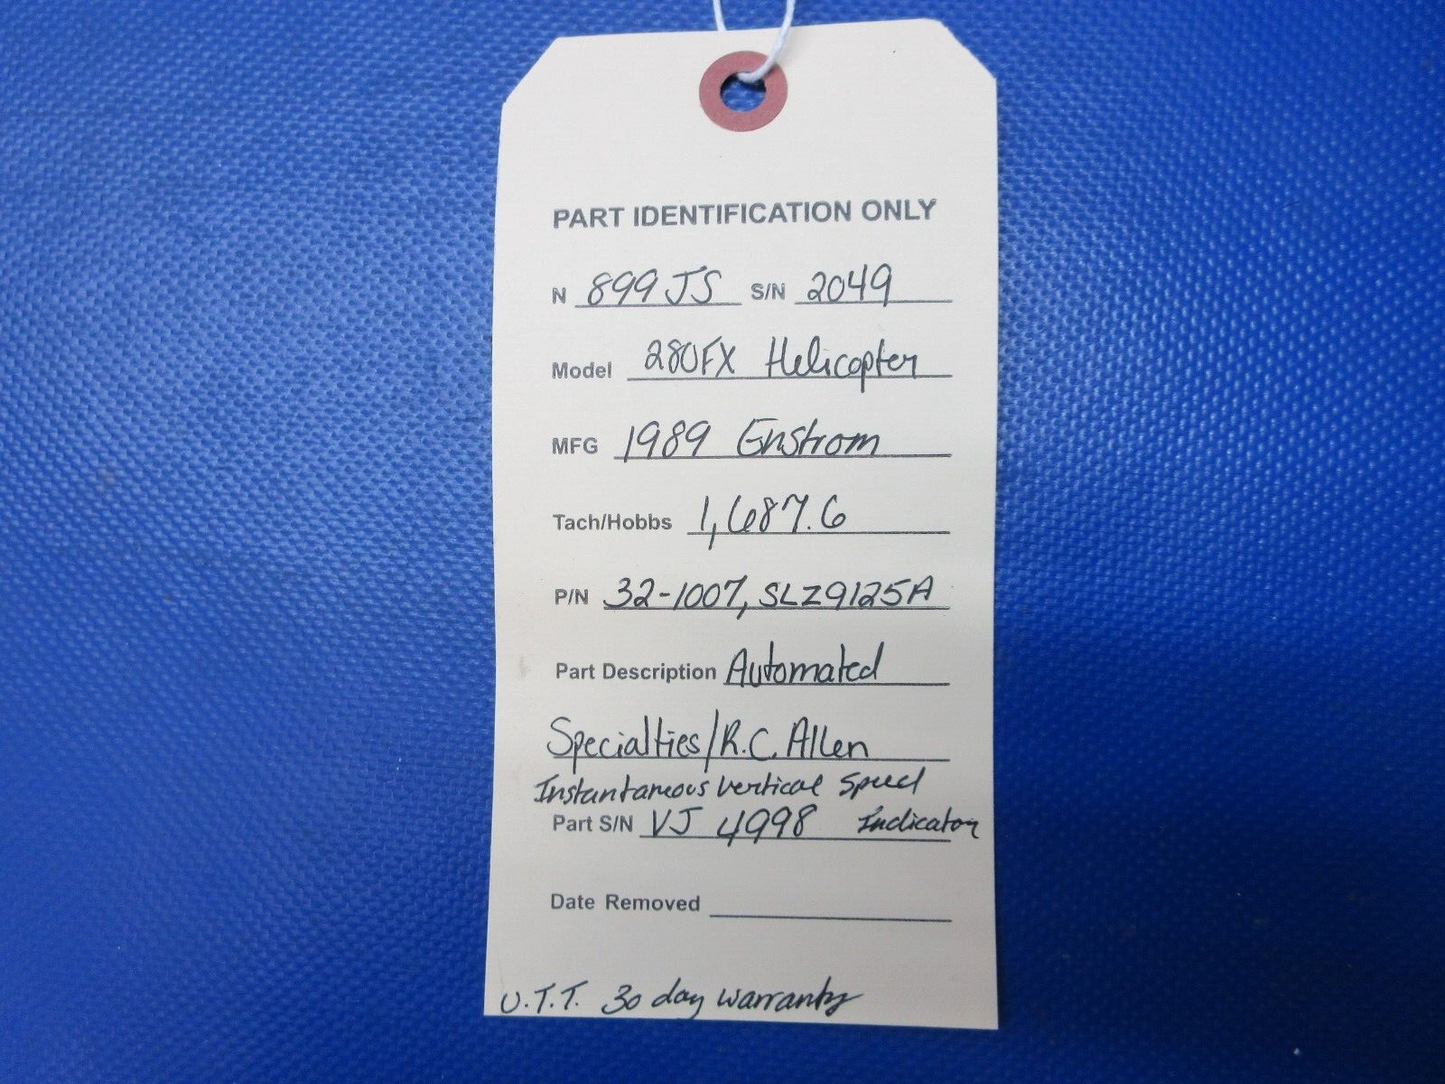 PART IDENTIFICATION ONLY
N 899JS S/N 2049
Model 280FX Helicopter
MFG 1989 Enstrom
Tach/Hobbs 1,687.6
P/N 32-1007, SLZ9125A
Part Description Automated
Specialties/R.C. Allen
Instantaneous Vertical Speed
Part S/N VJ 4998 Indicator
Date Removed
U.T.T. 30 day warranty